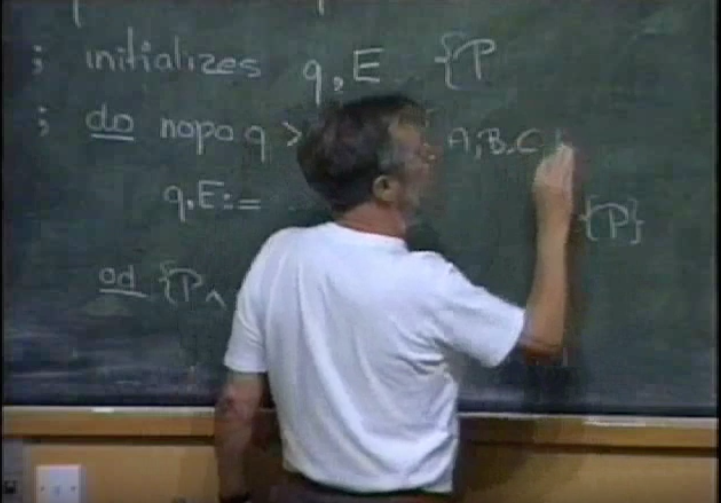 ; initializes q,E {P
; do nopo q > A,B,C
q,E:= {P}
od {P ∧